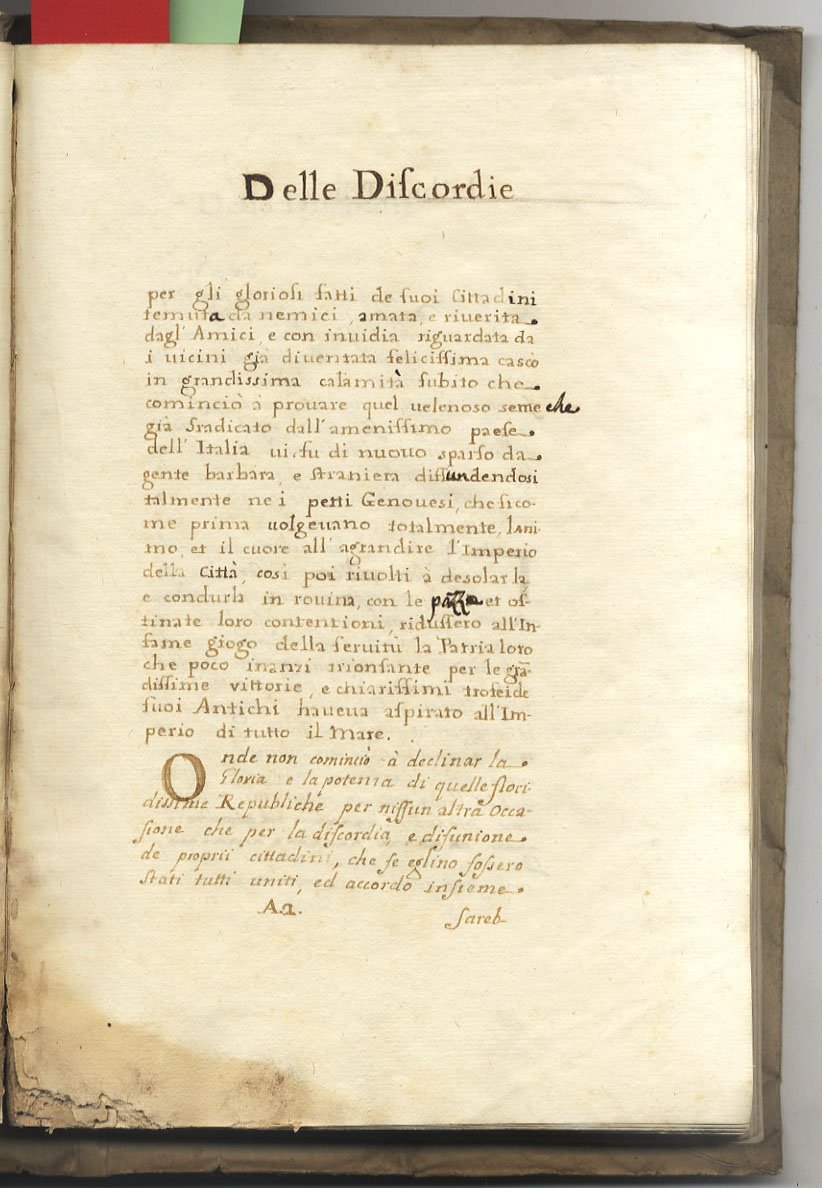 Delle Diſcordie
per gli glorioſi fatti de ſuoi Cittadini
temuta da nemici, amata, e riuerita
dagl' Amici, e con inuidia riguardata da
i uicini già diuentata feliciſſima cascò
in grandissima calamità ſubito che
cominciò à prouare quel uelenoso seme che
già sradicato dall' ameniſſimo paeſe
dell' Italia ui fu di nuouo sparſo da
gente barbara, e ſtraniera diffundendosi
talmente ne i petti Genoueſi, che ſico-
me prima uolgeuano totalmente, l'ani
mo, et il cuore all' agrandire l'Imperio
della Città, cosi poi riuolti à deſolarla
e condurla in rouina, con le pazze et oſ-
tinate loro contentioni, riduſſero all'In-
fame giogo della ſeruitù la Patria loro
che poco inanzi trionfante per le grã-
diſſime vittorie, e chiariſſimi trofei de
ſuoi Antichi haueua aſpirato all'Im-
perio di tutto il Mare.
Onde non cominciò à declinar la
Gloria e la potenza di quelle flori
dissime Republiche per niſſun'altra Occa-
ſione che per la diſcordia, e diſunione
de proprii cittadini, che ſe eglino foſſero
ſtati tutti uniti, ed accordo inſieme
A.2.
ſareb-